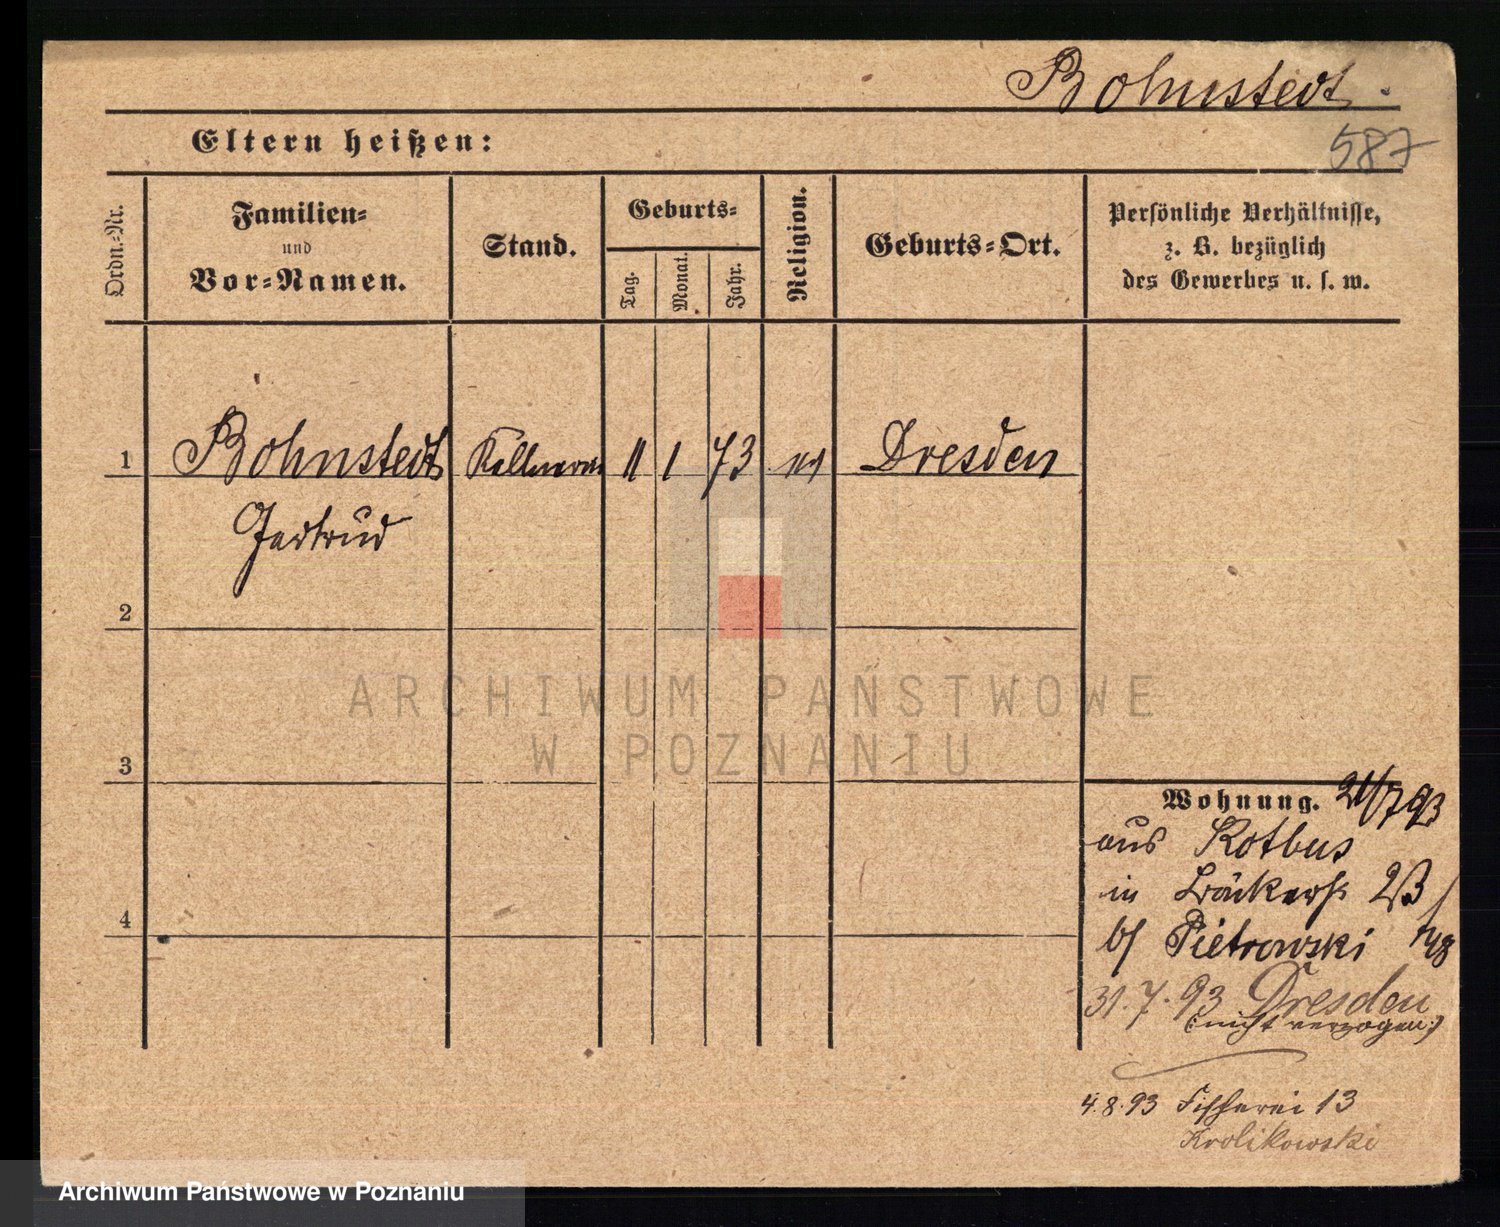 Bohnstedt.
587
Eltern heißen:
Ordn.-Nr.
Familien-
und
Vor-Namen.
Stand.
Geburts-
Tag.
Monat.
Jahr.
Religion.
Geburts-Ort.
Persönliche Verhältnisse,
z. B. bezüglich
des Gewerbes u. s. w.
1 Bohnstedt Kellnerin 11 1 73 ev Dresden
Gertrud
2
ARCHIWUM PAŃSTWOWE
W POZNANIU
3
Wohnung. 21/7 93
aus Kotbus
in Bäckerstr
b/ Pietrowski
31.7.93 Dresden
(nicht verzogen)
4
4.8.93 Fischerei 13
Krolikowski
Archiwum Państwowe w Poznaniu